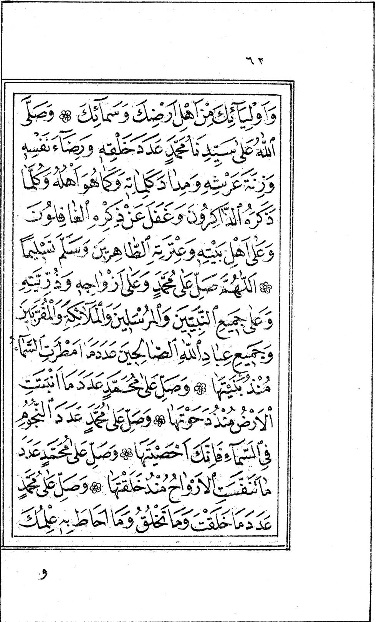 ٦٢
وَاَوْلِيَآئِكَ مِنْ اَهْلِ اَرْضِكَ وَسَمَآئِكَ ۞ وَصَلَّى
اللّٰهُ عَلٰى سَيِّدِنَا مُحَمَّدٍ عَدَدَ خَلْقِهٖ وَرِضَآءَ نَفْسِهٖ
وَزِنَةَ عَرْشِهٖ وَمِدَادَ كَلِمَاتِهٖ وَكَمَا هُوَ اَهْلُهُ وَكُلَّمَا
ذَكَرَهُ الذَّاكِرُونَ وَغَفَلَ عَنْ ذِكْرِهِ الْغَافِلُونَ
وَعَلٰى اَهْلِ بَيْتِهٖ وَعِتْرَتِهِ الطَّاهِرِينَ وَسَلَّمَ تَسْلِيمًا
۞ اَللّٰهُمَّ صَلِّ عَلٰى مُحَمَّدٍ وَعَلٰى اَزْوَاجِهٖ وَذُرِّيَّتِهٖ
وَعَلٰى جَمِيعِ النَّبِيِّينَ وَالْمُرْسَلِينَ وَالْمَلَآئِكَةِ وَالْمُقَرَّبِينَ
وَجَمِيعِ عِبَادِ اللّٰهِ الصَّالِحِينَ عَدَدَ مَا اَمْطَرَتِ السَّمَآءُ
مُنْذُ بَنَيْتَهَا ۞ وَصَلِّ عَلٰى مُحَمَّدٍ عَدَدَ مَا اَنْبَتَتِ
الْاَرْضُ مُنْذُ دَحَوْتَهَا ۞ وَصَلِّ عَلٰى مُحَمَّدٍ عَدَدَ النُّجُومِ
فِي السَّمَآءِ فَاِنَّكَ اَحْصَيْتَهَا ۞ وَصَلِّ عَلٰى مُحَمَّدٍ عَدَدَ
مَا تَنَفَّسَتِ الْاَرْوَاحُ مُنْذُ خَلَقْتَهَا ۞ وَصَلِّ عَلٰى مُحَمَّدٍ
عَدَدَ مَا خَلَقْتَ وَمَا تَخْلُقُ وَمَا اَحَاطَ بِهٖ عِلْمُكَ
و